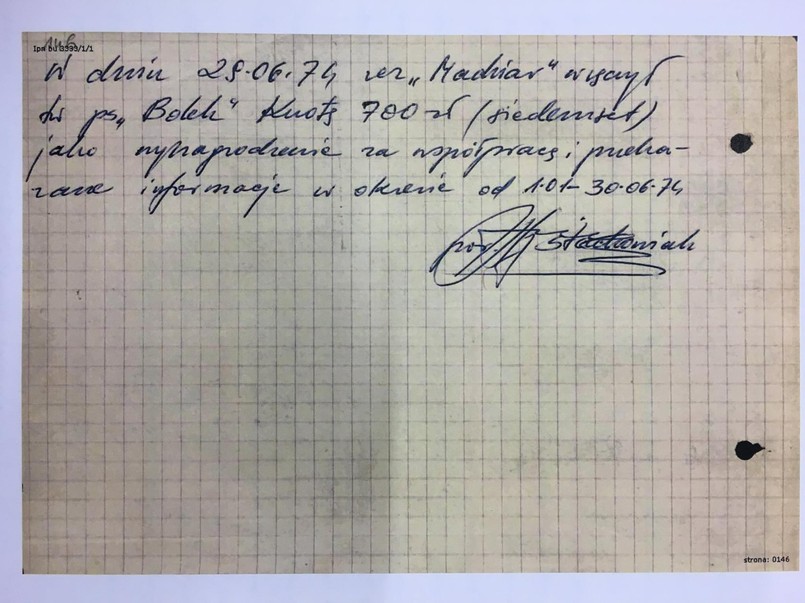 Ipn bu 3393/1/1
146
W dniu 29.06.74 rez „Madziar" wręczył
tw ps „Bolek" kwotę 700 zł (siedemset)
jako wynagrodzenie za współpracę i przeka-
zane informacje w okresie od 1.01-30.06.74
por
strona: 0146